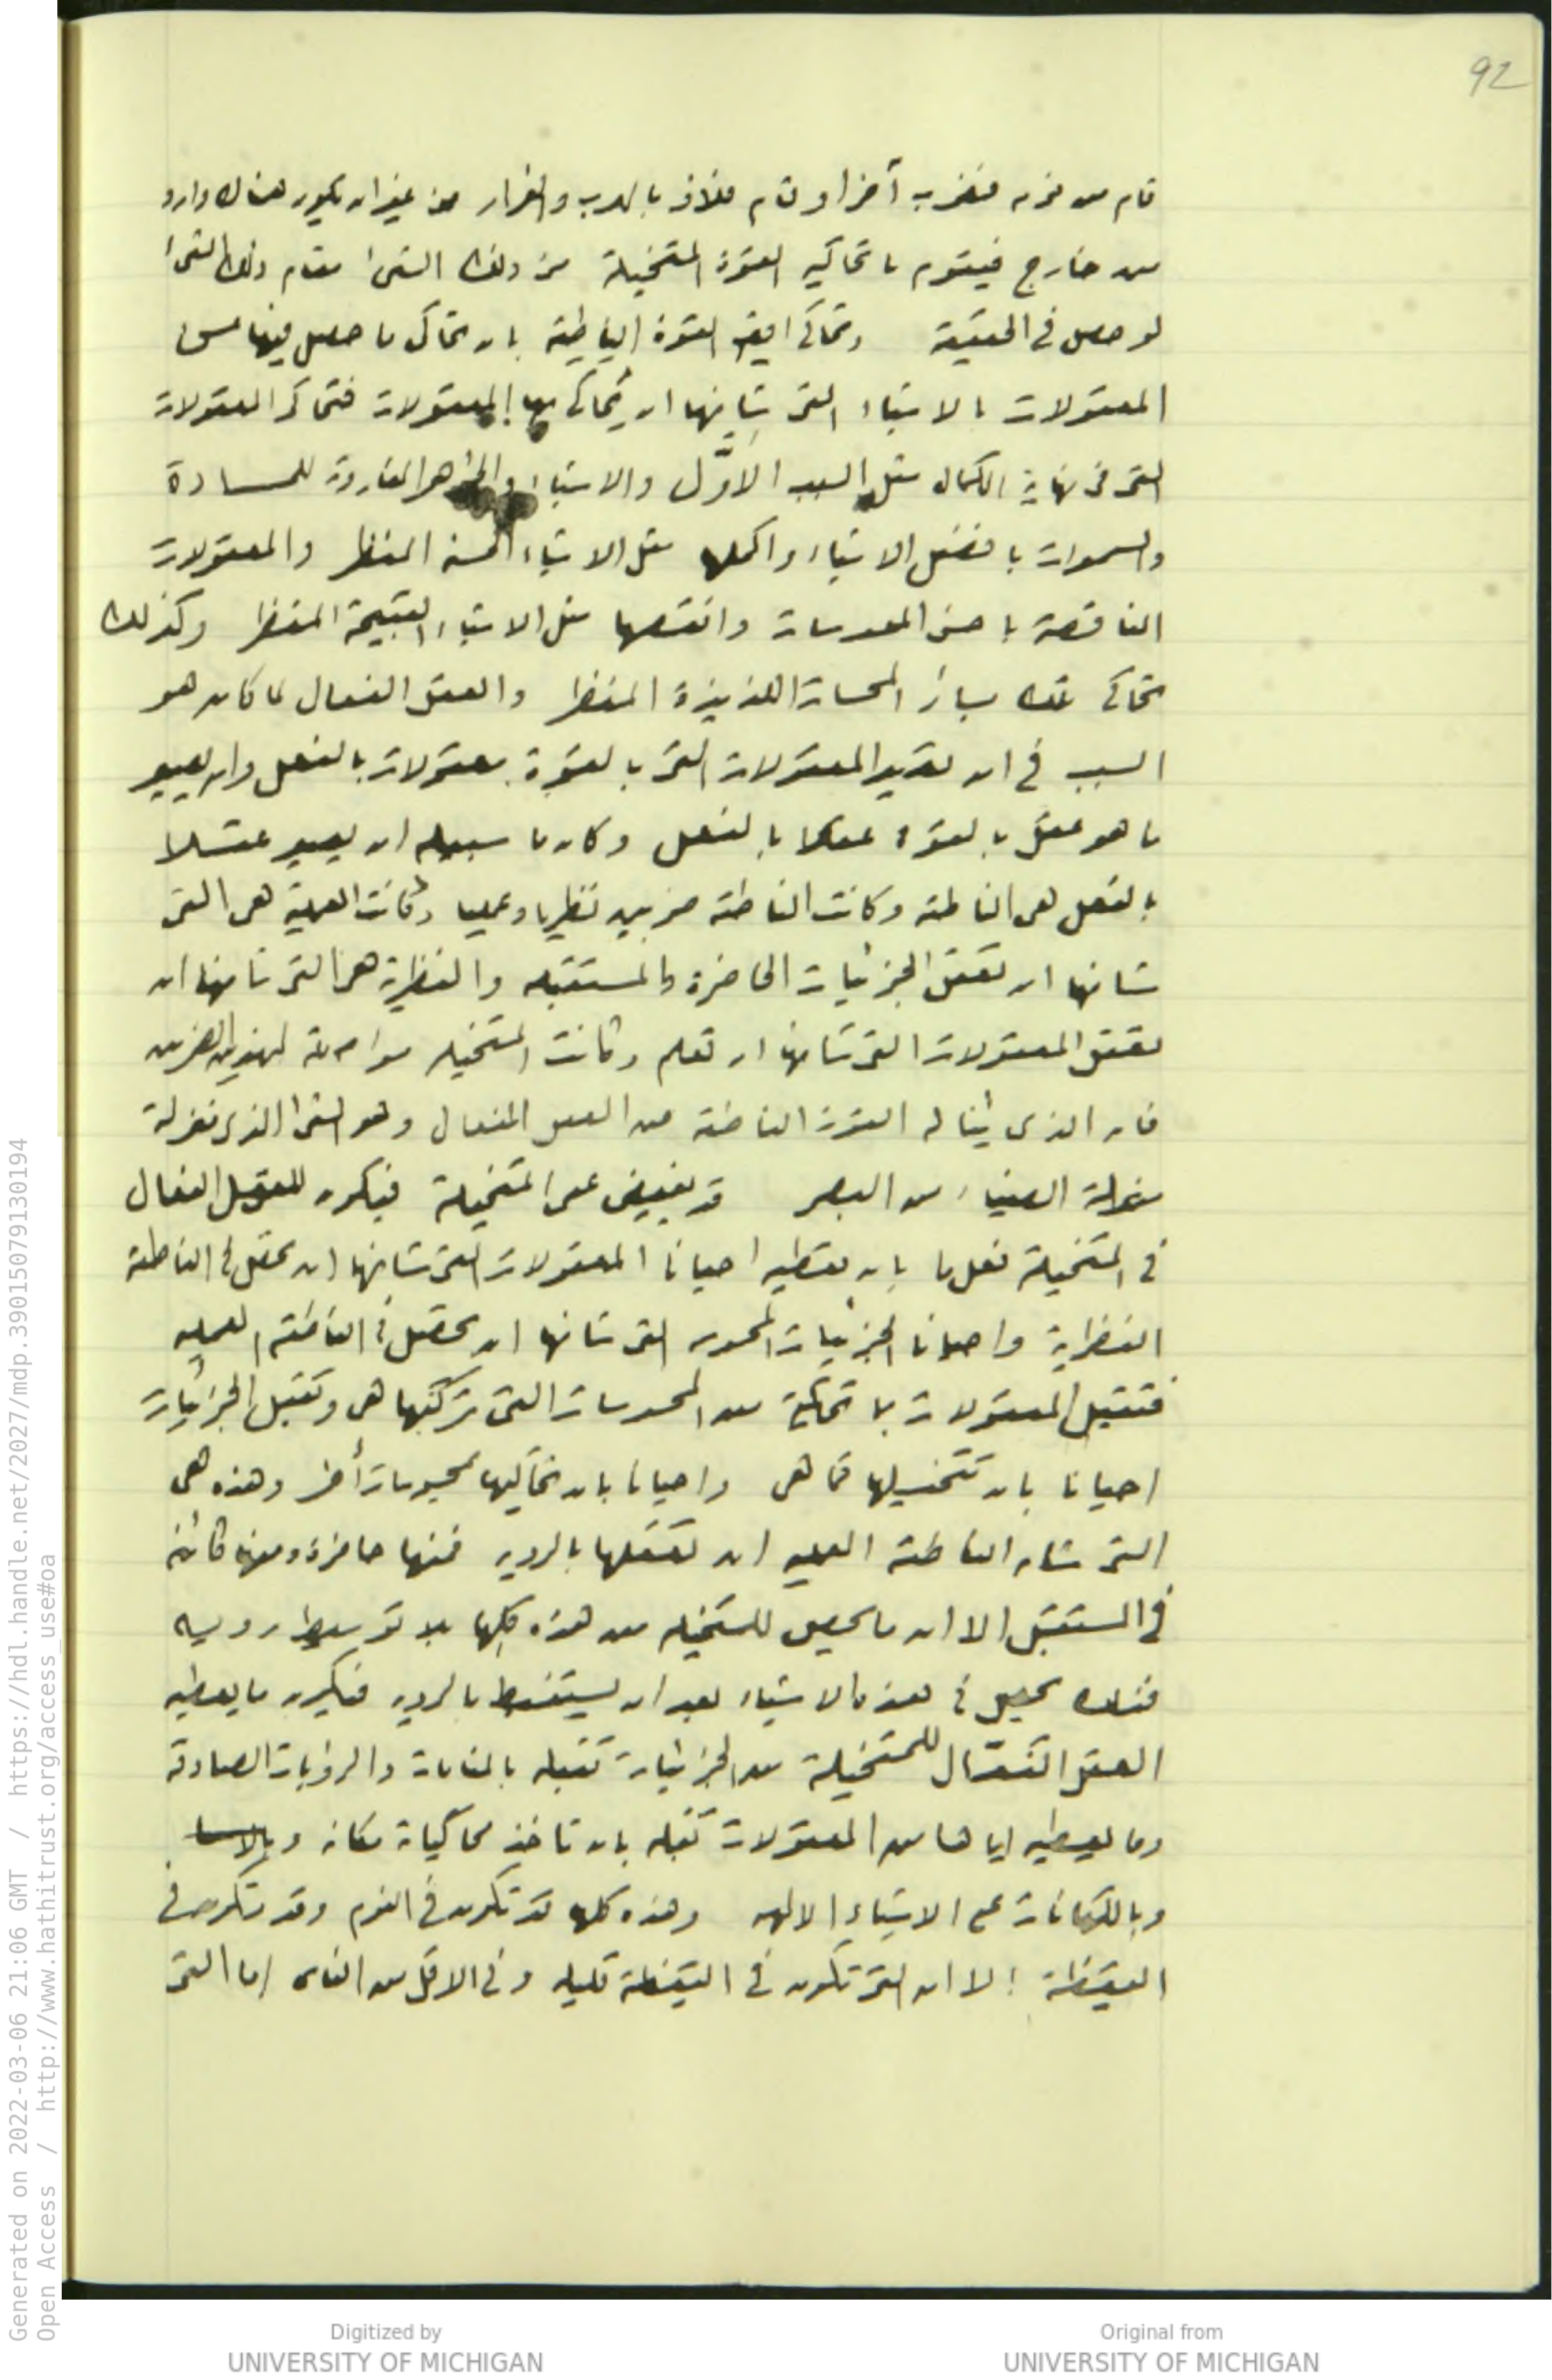 92
قام من نومه فضرب آخر او قام فلاذ بالهرب والفرار من غير ان يكون هناك وارد
من خارج فيقوم ما تحاكيه القوة المتخيلة من ذلك الشئ مقام ذلك الشئ
لو حصل فى الحقيقة وتحاكى ايضا القوة الناطقة بان تحاكى ما حصل فيها من
المعقولات بالاشياء التى شانها ان تحاكى بها المعقولات فتحاكى المعقولات
التى فى نهاية الكمال مثل السبب الاوّل والاشياء والجواهر المفارقة للمادة
والسموات بافضل الاشياء واكملها مثل الاشياء الحسنة المنظر والمعقولات
الناقصة باخس المحسوسات وانقصها مثل الاشياء القبيحة المنظر وكذلك
تحاكى تلك سائر المحسات اللذيذة المنظر والعقل الفعال لما كان هو
السبب فى ان تصير المعقولات التى بالقوة معقولات بالفعل وان يصير
ما هو عقل بالقوة عقلا بالفعل وكان ما سبيله ان يصير عقلا
بالفعل هى الناطقة وكانت الناطقة ضربين نظريا وعمليا وكانت العملية هى التى
شانها ان تعقل الجزئيات الحاضرة والمستقبله والنظرية هى التى شانها ان
تعقل المعقولات التى شانها ان تعلم وكانت المتخيله مواصلة لهذين الضربين
فان الذى يناله القوة الناطقة من العقل الفعال وهو الشئ الذى منزلة
منزلة الضياء من البصر قد يفيض على المتخيلة فيكون للعقل الفعال
فى المتخيلة فعل ما بان يعطيه احيانا المعقولات التى شانها ان تحصل فى الناطقة
النظرية واحيانا الجزئيات المحسوسه التى شانها ان تحصل فى الناطقة العمليه
فتقبل المعقولات بما تحاكية من المحسوسات التى تركبها هى وتقبل الجزئيات
احيانا بان تتخيلها كما هى واحيانا بان تحاكيها بمحسوسات أخر وهذه هى
التى شان الناطقة العمليه ان تعقلها بالرويه فمنها حاضرة ومنها كائنه
فى المستقبل الا ان ما يحصل للمتخيله من هذه كلها بلا توسيط رويه
فلذلك يحصل فى هذه الاشياء بعد ان يستنبط بالرويه فيكون ما يعطيه
العقل الفعّال للمتخيلة من الجزئيات تقبله بالمنامات والرؤيات الصادقة
وما يعطيه اياها من المعقولات تقبله بان تاخذ محاكياة مكانه
وبالكهانات على الاشياء الالهيه وهذه كلها قد تكون فى النوم وقد تكون فى
اليقظة الا ان التى تكون فى اليقظة قليله وفى الاقل من الناس اما التى
Generated on 2022-03-06 21:06 GMT / https://hdl.handle.net/2027/mdp.39015079130194
Open Access / http://www.hathitrust.org/access_use#oa
Digitized by
UNIVERSITY OF MICHIGAN
Original from
UNIVERSITY OF MICHIGAN